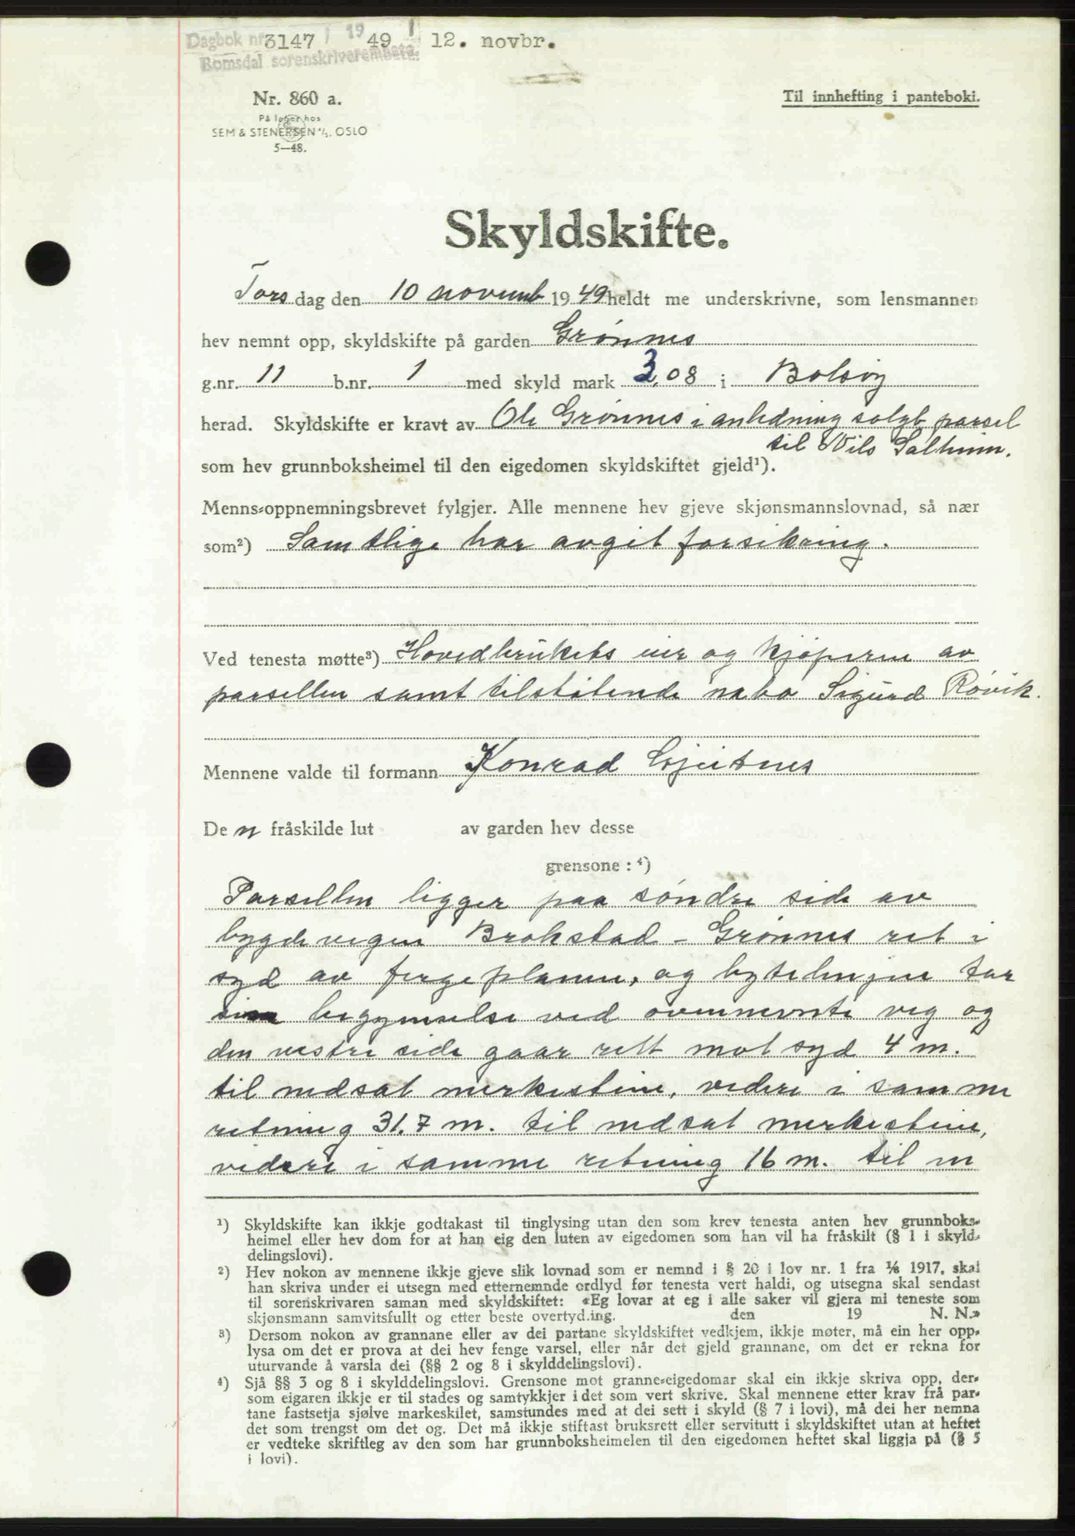 Dagbok nr. 3147 19 49 12. novbr.
Romsdal sorenskriverembete.
Nr. 860 a.
På lager hos
SEM & STENERSEN A/S. OSLO
5—48.
Til innhefting i panteboki.
Skyldskifte.
Tors dag den 10 novemb. 1949 heldt me underskrivne, som lensmannen
hev nemnt opp, skyldskifte på garden Grønnes
g.nr. 11 b.nr. 1 med skyld mark 3,08 i Bolsøy
herad. Skyldskifte er kravt av Ole Grønnes i anledning solgt parsel
til Nils Salheim.
som hev grunnboksheimel til den eigedomen skyldskiftet gjeld¹).
Menns-oppnemningsbrevet fylgjer. Alle mennene hev gjeve skjønsmannslovnad, så nær
som²) Samtlige har avgit forsikring.
Ved tenesta møtte³) Hovedbrukets eier og kjøperen av
parsellen samt tilstøtende nabo Sigurd Røvik.
Mennene valde til formann Konrad Gjeitnes
De n fråskilde lut av garden hev desse
grensone : ⁴)
Parsellen ligger paa søndre side av
bygdevegen Brokstad - Grønnes ret i
syd av fergeplanen, og bytelinjen tar
sin begynnelse ved ovennevnte veg og
den vestre side gaar rett mot syd 4 m.
til nedsat merkestein, videre i samme
retning 31.7 m. til nedsat merkestein,
videre i samme retning 16 m. til n
¹) Skyldskifte kan ikkje godtakast til tinglysing utan den som krev tenesta anten hev grunnboks-
heimel eller hev dom for at han eig den luten av eigedomen som han vil ha fråskilt (§ 1 i skyld-
delingslovi).
²) Hev nokon av mennene ikkje gjeve slik lovnad som er nemnd i § 20 i lov nr. 1 fra ⅛ 1917, skal
han skriva under ei utsegn med etternemnde ordlyd før tenesta vert haldi, og utsegna skal sendast
til sorenskrivaren saman med skyldskiftet: «Eg lovar at eg i alle saker vil gjera mi teneste som
skjønsmann samvitsfullt og etter beste overtyding. den 19 N. N.»
³) Dersom nokon av grannane eller av dei partane skyldskiftet vedkjem, ikkje møter, må ein her opp-
lysa om det er prova at dei hev fenge varsel, eller når det gjeld grannane, om det er rekna for
uturvande å varsla dei (§§ 2 og 8 i skylddelingslovi).
⁴) Sjå §§ 3 og 8 i skylddelingslovi. Grensone mot granne-eigedomar skal ein ikkje skriva opp, der-
som eigaren ikkje er til stades og samtykkjer i det som vert skrive. Skal mennene etter krav frå par-
tane fastsetja sjølve markeskilet, samstundes med at dei sett i skyld (§ 7 i lovi), må dei her nemna
det som trengst om det og. Det må ikkje stiftast bruksrett eller servitutt i skyldskiftet utan at heftet
er vedteke skriftleg av den som har grunnboksheimelen til den eigedomen heftet skal liggja på (§ 5
i lovi).